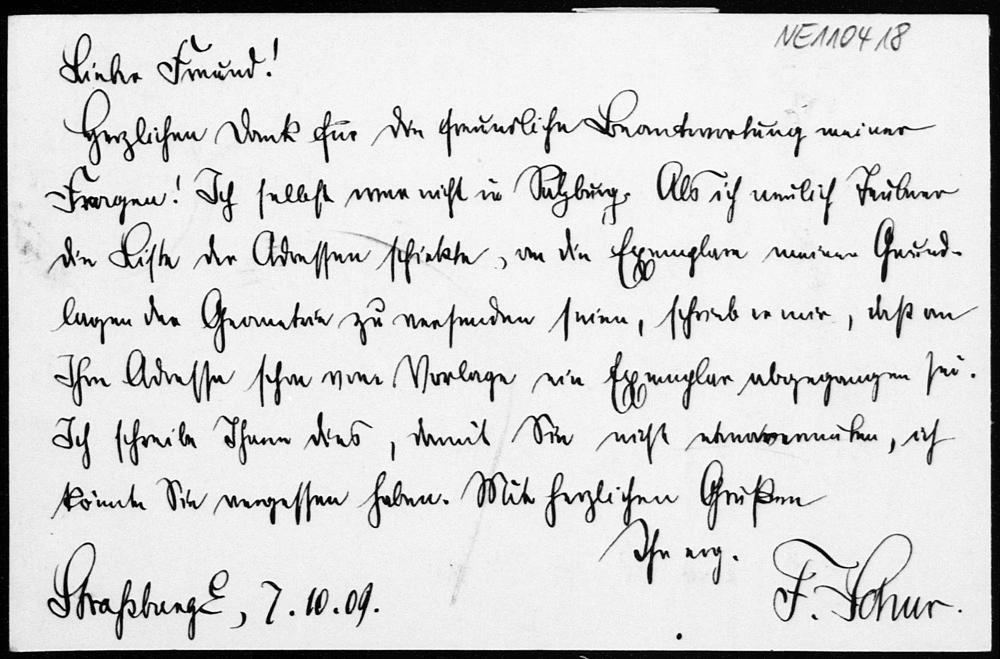 NE110418
Lieber Freund!
Herzlichen Dank für die freundliche Beantwortung meiner
Fragen! Ich selbst war nicht in Salzburg. Als ich neulich Teubner
die Liste der Adressen schickte, an die Exemplare meiner Grund-
lagen der Geometrie zu versenden seien, schrieb er mir, daß an
Ihre Adresse schon vom Verlage ein Exemplar abgegangen sei.
Ich schreibe Ihnen dies, damit Sie nicht etwa vermuten, ich
könnte Sie vergessen haben. Mit herzlichen Grüßen
Ihr erg.
Straßburg E, 7.10.09. F. Schur.